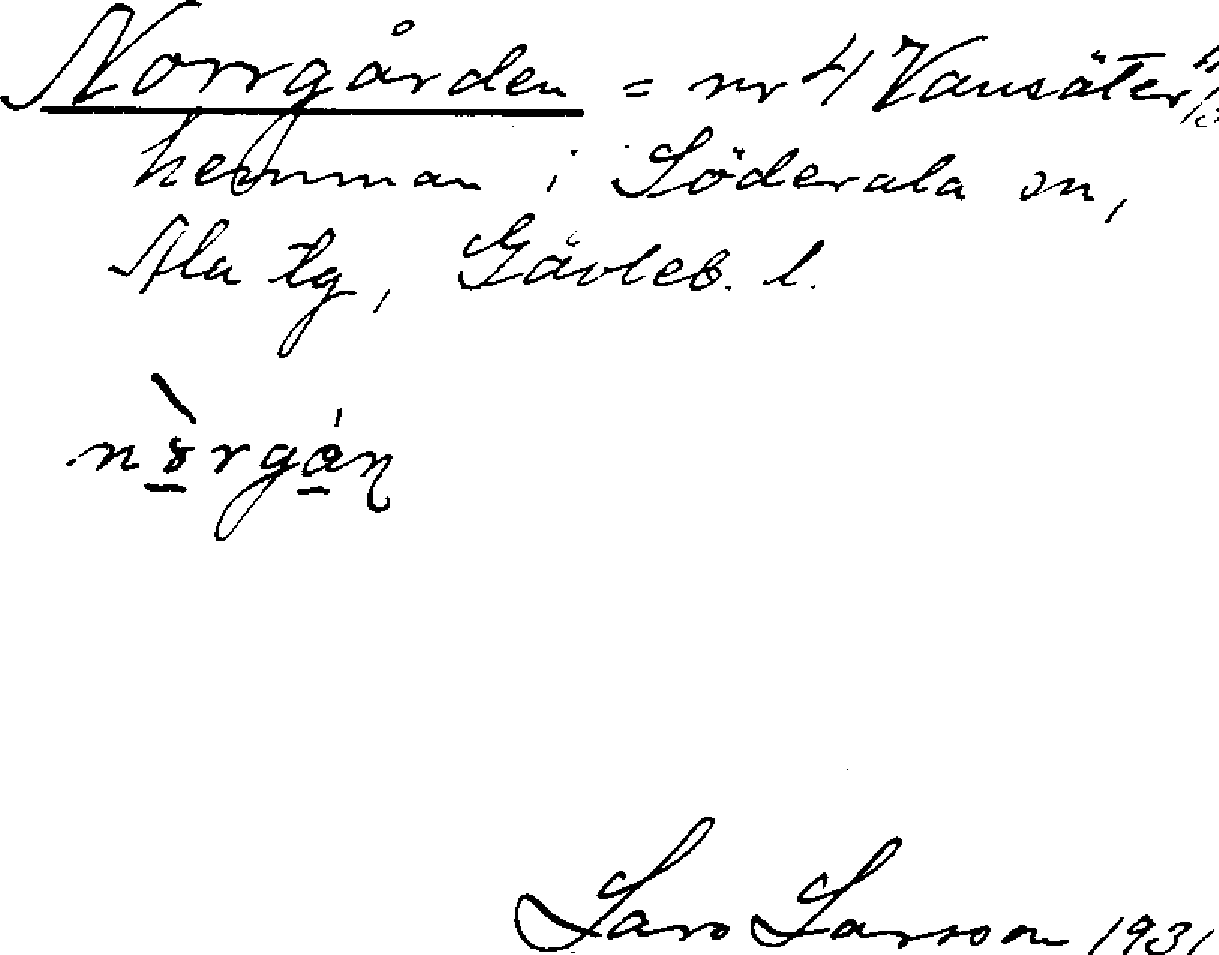 Norrgården = nr 4 Vansäter
hemman i Söderala sn,
Ala tg, Gävleb. l.
Lars Larsson 1931